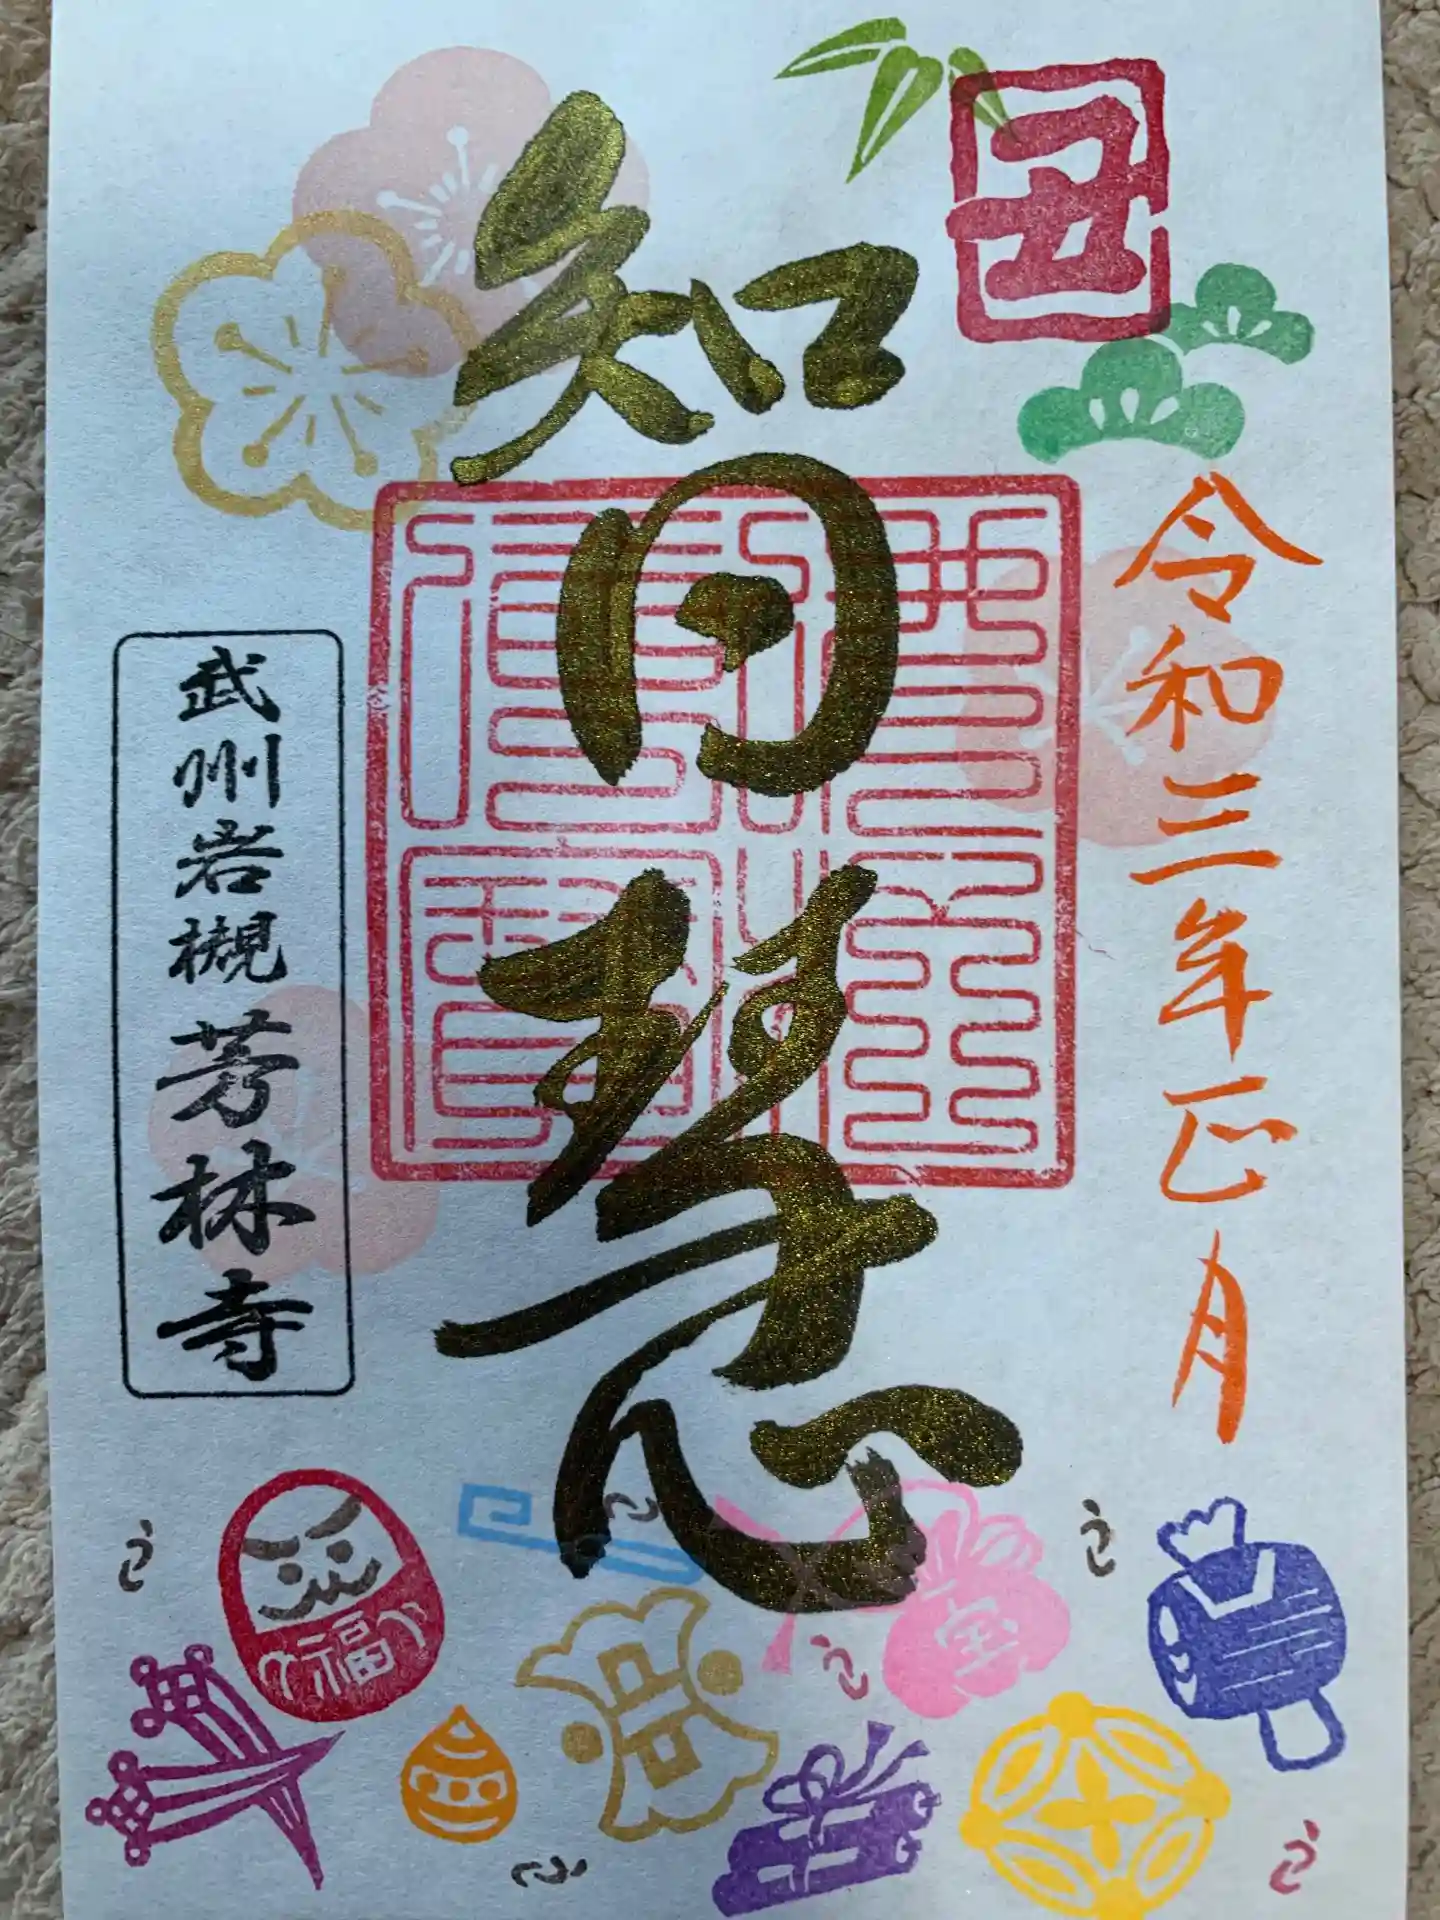 丑
令和三年正月
智慧
武州岩槻芳林寺
福
宝